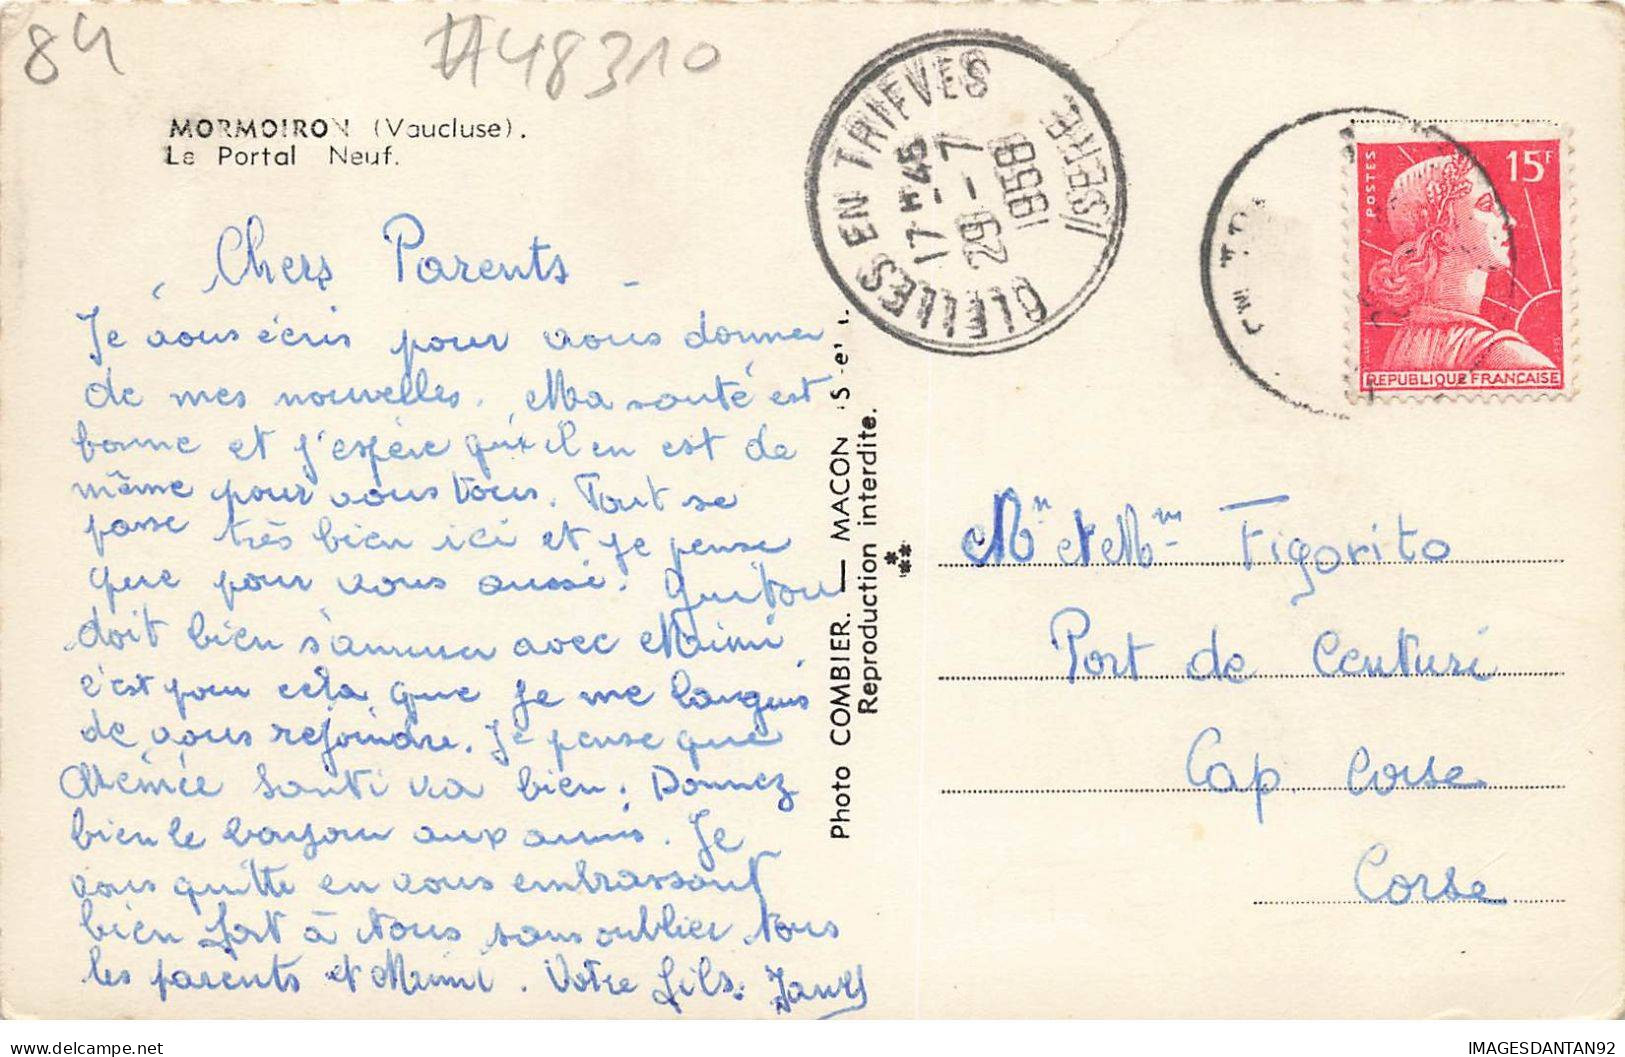 84
#48310
MORMOIRON (Vaucluse).
Le Portal Neuf.
Chers Parents
Je vous écris pour vous donner
de mes nouvelles. Ma santé est
bonne et j'espère qu'il en est de
même pour vous tous. Tout se
passe très bien ici et je pense
que pour vous aussi. Guitou
doit bien s'amuser avec Mimi
c'est pour cela que je me languis
de vous rejoindre. Je pense que
Mémée Santi va bien. Donnez
bien le bonjour aux amis. Je
vous quitte en vous embrassant
bien fort à tous sans oublier tous
les parents et Mimi. Votre fils.
Photo COMBIER. — MACON
Reproduction interdite.
CLELLES EN TRIEVES
17H45
29-7
1958
ISERE
POSTES
15F
REPUBLIQUE FRANÇAISE
Mr et Mme Figorito
Port de Centuri
Cap Corse
Corse
IMAGESDANTAN92